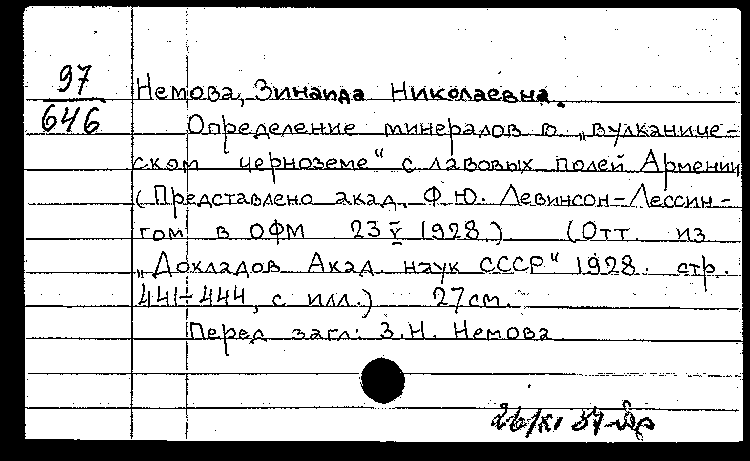 97
646
Немова, Зинаида Николаевна.
Определение минералов в „вулканиче-
ском черноземе" с лавовых полей Армении
(Представлено акад. Ф.Ю. Левинсон-Лессин-
гом в ОФМ 23 V 1928.) (Отт из
„Докладов Акад. наук СССР" 1928. стр.
441-444, с илл.) 27см.
Перед загл: З.Н. Немова
26/XI 57